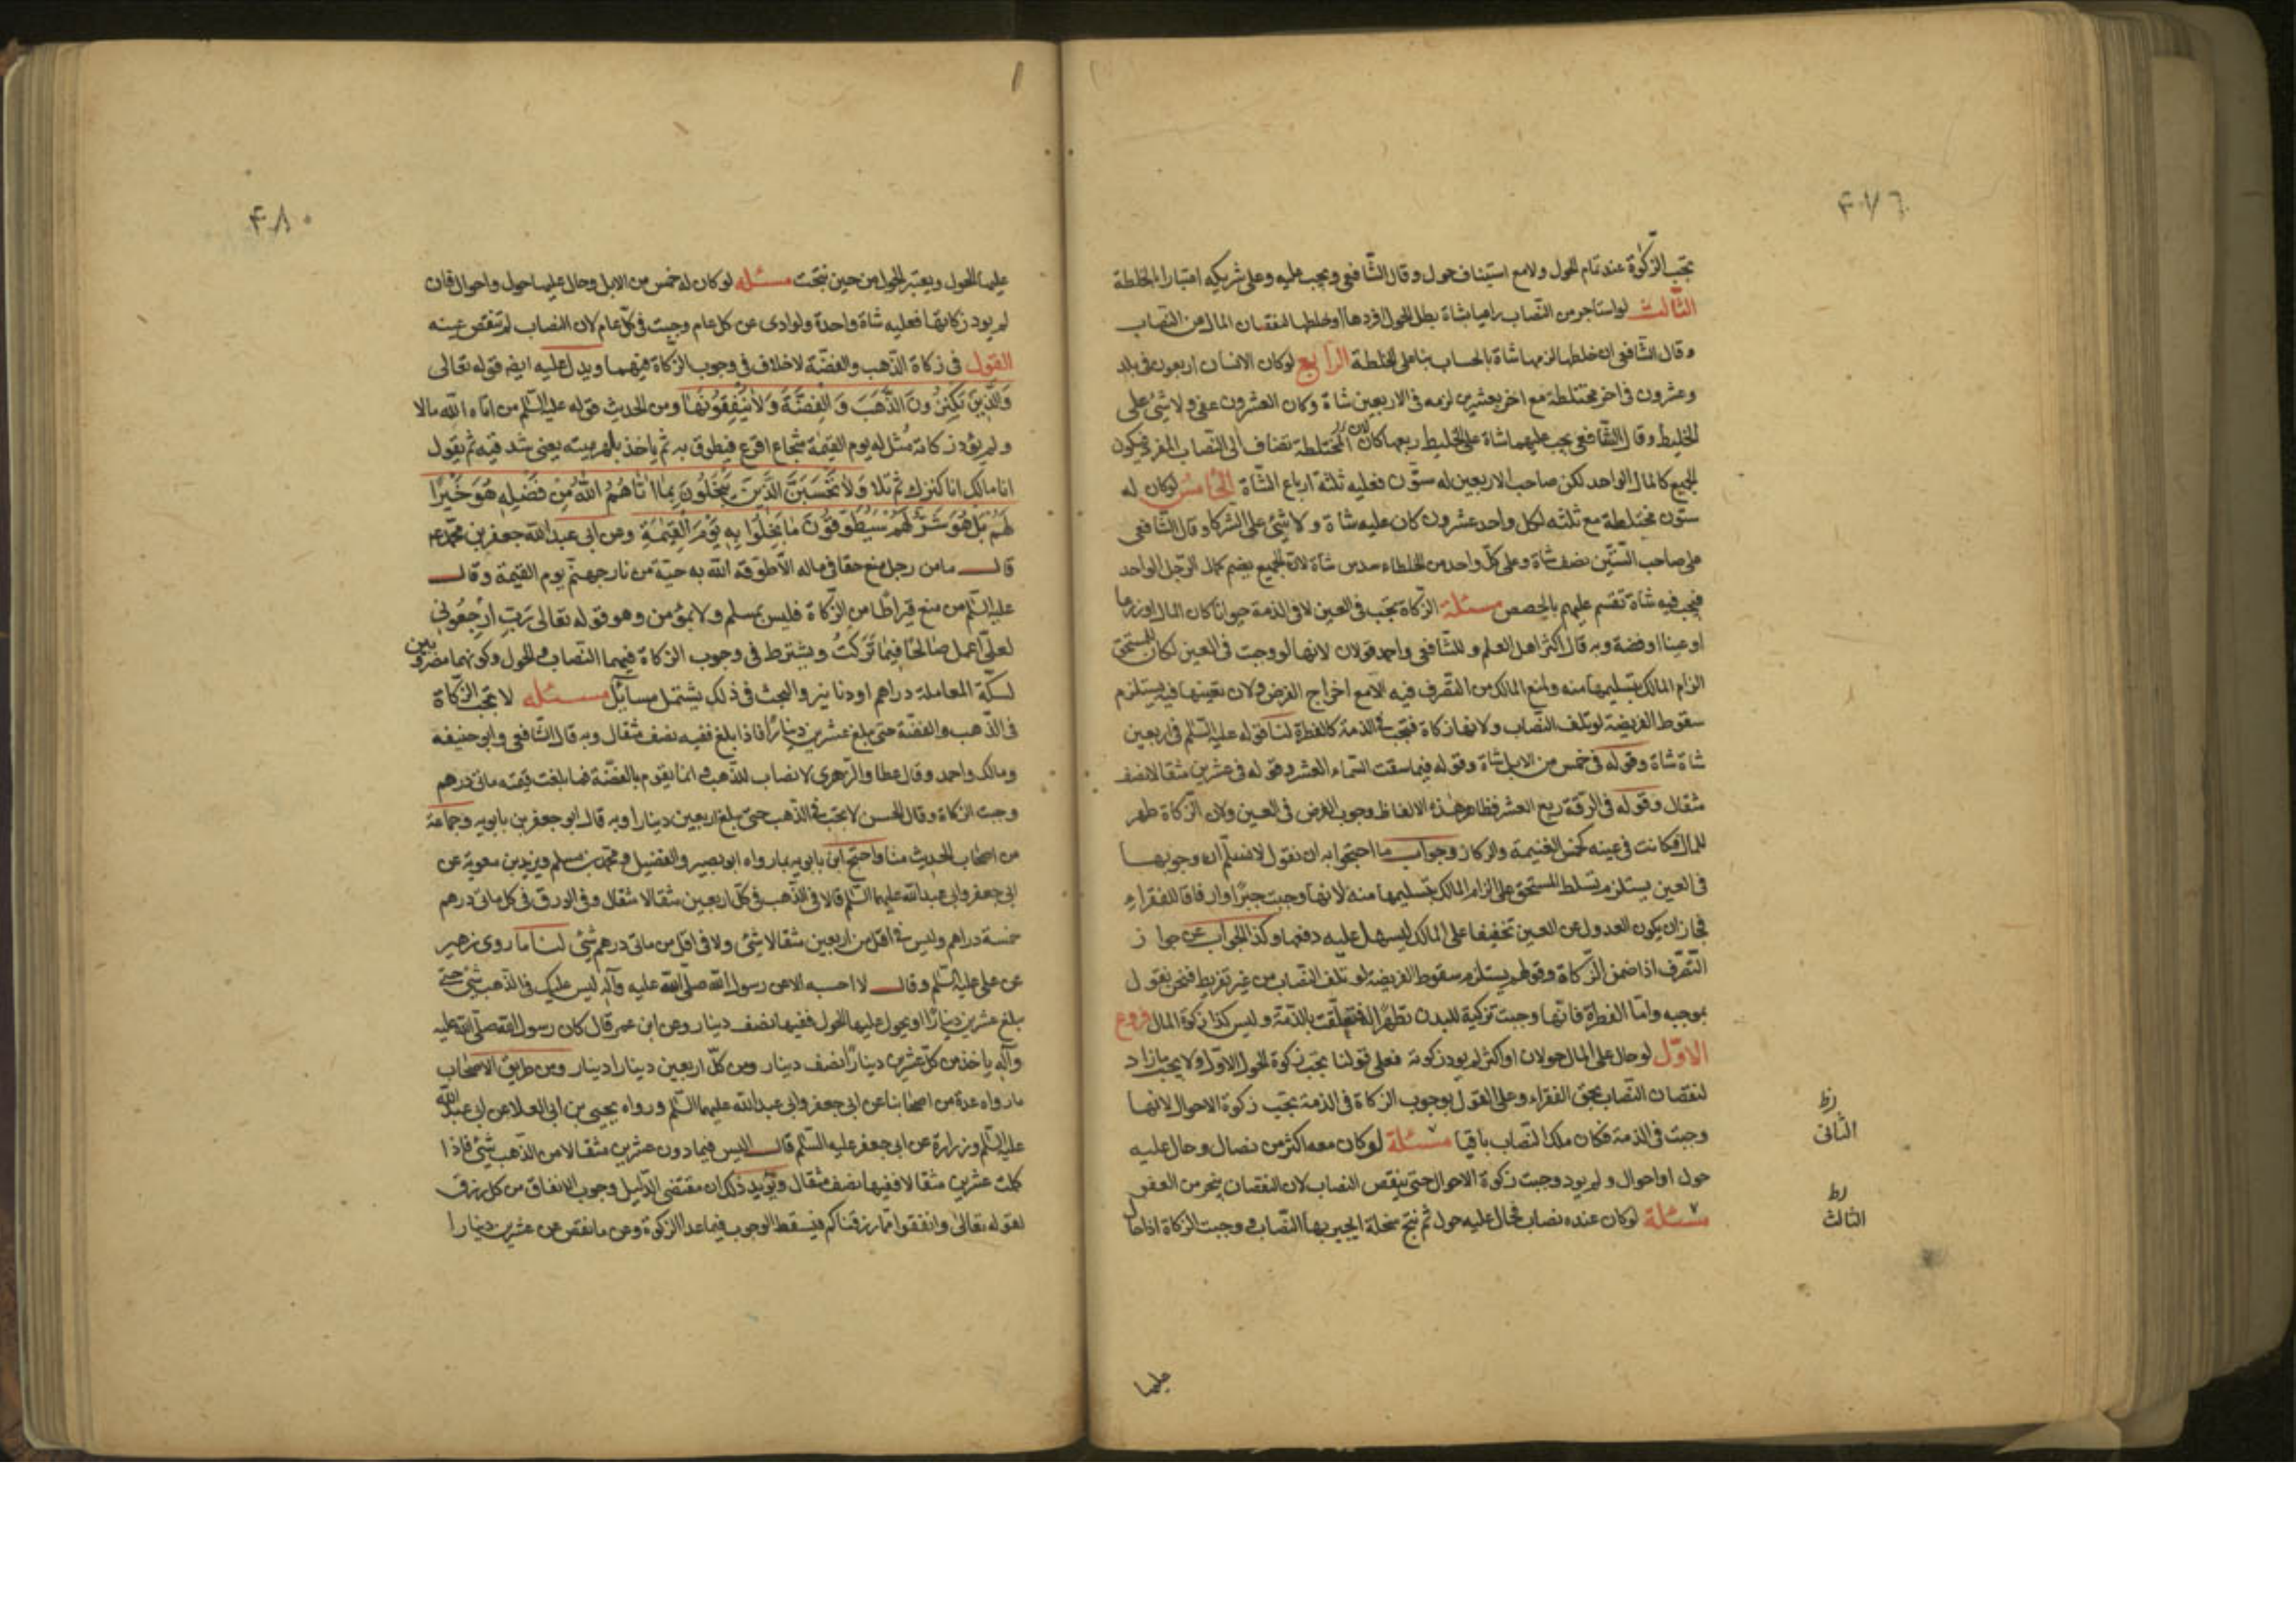 ٤٧٦
تجب الزكوة عند تمام الحول ولا مع استيناف حول وقال الشافعى ويجب عليه وعلى شريكه اعتبارا بالخلطة
الثالث لو استاجر من النصاب راعيا بشاة بطل الحول افردها او خلطها لنقصان المال من النصاب
وقال الشافعى ان خلطها لزمها شاة بالحساب بناء على الخلطة الرابع لو كان الانسان اربعون فى بلد
وعشرون فى اخر مختلطة مع اخر بعشرين لزمه فى الاربعين شاة وكان العشرون عفو ولا شئ على
الخليط وقال الشافعى يجب عليهما شاة على الخليط ربعها لان المختلطة تضاف الى النصاب المفرد فيكون
الجميع كالمال الواحد لكن صاحب الاربعين له ستون فعليه ثلثة ارباع الشاة الخامس لو كان له
ستون مختلطة مع ثلثه لكل واحد عشرون كان عليه شاة ولا شئ على الشركاء وقال الشافعى
على صاحب الستين نصف شاة وعلى كل واحد من الخلطاء سدس شاة لان الجميع يضم كمال الرجل الواحد
فيجب فيه شاة تقسم عليهم بالحصص مسئلة الزكاة تجب فى العين لا فى الذمة حيوانا كان المال او زرعا
او عينا او فضة وبه قال اكثر اهل العلم وللشافعى واحمد قولان لانها لو وجبت فى العين لكان للمستحق
الزام المالك بتسليمها منه ولمنع المالك من التصرف فيه الا مع اخراج الفرض ولان تعينها فيه يستلزم
سقوط الفريضة لو تلف النصاب ولانها زكاة فتجب فى الذمة كالفطرة لنا قوله عليه السلم فى اربعين
شاة شاة وقوله فى خمس من الابل شاة وقوله فيما سقت السماء العشر وقوله فى عشرين مثقالا نصف
مثقال وقوله فى الرقة ربع العشر فظاهر هذه الالفاظ وجوب الفرض فى العين ولان الزكاة طهر
للمال فكانت فى عينه كخمس الغنيمة والركاز وجواب ما احتجوا به ان نقول لا نسلم ان وجوبها
فى العين يستلزم تسلط المستحق على الزام المالك بتسليمها منه لانها وجبت جبرا وارفاقا للفقراء
فجاز ان يكون العدول عن العين تخفيفا على المالك ليسهل عليه دفعها وكذا الجواب عن جواز
التصرف اذا ضمن الزكاة وقولهم يستلزم سقوط الفريضة لو تلف النصاب من غير تفريط فنحن نقول
بموجبه واما الفطرة فانها وجبت تزكية للبدن تطهرا له فتعلقت بالذمة وليس كذا زكوة المال فروع
الاول لو حال على المال حولان او اكثر لم يود زكوته فعلى قولنا تجب زكوة الحول الاول ولا يجب ما زاد
لنقصان النصاب بحق الفقراء وعلى القول بوجوب الزكاة فى الذمة يجب زكوة الاحوال لانها
وجبت فى الذمة فكان ملك النصاب باقيا مسئلة لو كان معه اكثر من نصاب وحال عليه
حول او احوال ولم يود وجبت زكوة الاحوال حتى ينقص النصاب لان النقصان ينجبر من العفو
مسئلة لو كان عنده نصاب فحال عليه حول ثم نتج سخلة انجبر بها النصاب ووجبت الزكاة اذا حال
الثانى
الثالث
عليها
٤٨٠
عليها الحول ويعتبر الحول من حين نتجت مسئله لو كان له خمس من الابل وحال عليها حول واحوال فان
لم يود زكاتها فعليه شاة واحدة ولو ادى عن كل عام وجبت فى كل عام لان النصاب لم تنقص عينه
القول فى زكاة الذهب والفضة لا خلاف فى وجوب الزكاة فيهما ويدل عليه ايضا قوله تعالى
وَالَّذِينَ يَكْنِزُونَ الذَّهَبَ وَالْفِضَّةَ وَلَا يُنْفِقُونَهَا ومن الحديث قوله عليه السلم من اتاه الله مالا
ولم يؤد زكاته مُثل له يوم القيمة شجاع اقرع فيطوق به ثم ياخذ بلهزميته يعنى شدقيه ثم يقول
انا مالك انا كنزك ثم تلا وَلَا تَحْسَبَنَّ الَّذِينَ يَبْخَلُونَ بِمَا اٰتَاهُمُ اللّٰهُ مِنْ فَضْلِهِ هُوَ خَيْرًا
لَهُمْ بَلْ هُوَ شَرٌّ لَهُمْ سَيُطَوَّقُونَ مَا بَخِلُوا بِهِ يَوْمَ الْقِيٰمَةِ وعن ابى عبد الله جعفر بن محمد عم
قال ما من رجل منع حقا فى ماله الا طوقه الله به حية من نار جهنم يوم القيمة وقال
عليه السلم من منع قيراطا من الزكاة فليس بمسلم ولا بمؤمن وهو قوله تعالى رَبِّ ارْجِعُونِي
لعلى اعمل صالحا فيما تركتُ ويشترط فى وجوب الزكاة فيهما النصاب والحول وكونهما مضروبين
لسكة المعاملة دراهم او دنانير والبحث فى ذلك يشتمل مسائل مسئله لا تجب الزكاة
فى الذهب والفضة حتى يبلغ عشرين دينارا فاذا بلغ ففيه نصف مثقال وبه قال الشافعى وابو حنيفه
ومالك واحمد وقال عطا والزهرى لا نصاب للذهب وانما يقوم بالفضة فما بلغت قيمته مائتى درهم
وجبت الزكاة وقال الحسن لا تجب فى الذهب حتى يبلغ اربعين دينارا وبه قال ابو جعفر بن بابويه وجماعة
من اصحاب الحديث منا واحتج ابن بابويه بما رواه ابو بصير والفضيل ومحمد بن مسلم وبريد بن معوية عن
ابى جعفر وابى عبد الله عليهما السلم قالا فى الذهب فى كل اربعين مثقالا مثقال وفى الورق فى كل مائتى درهم
خمسة دراهم وليس فى اقل من اربعين مثقالا شئ ولا فى اقل من مائتى درهم شئ لنا ما روى زهير
عن على عليه السلم وقال لا احسبه الا عن رسول الله صلى الله عليه وآله ليس عليك فى الذهب شئ حتى
يبلغ عشرين دينارا ويحول عليها الحول ففيها نصف دينار وعن ابن عمر قال كان رسول الله صلى الله عليه
وآله ياخذ من كل عشرين دينارا نصف دينار ومن كل اربعين دينارا دينار ومن طريق الاصحاب
ما رواه عدة من اصحابنا عن ابى جعفر وابى عبد الله عليهما السلم ورواه يحيى بن ابى العلا عن ابى عبد الله
عليه السلم وزرارة عن ابى جعفر عليه السلم قال ليس فيما دون عشرين مثقالا من الذهب شئ فاذا
كملت عشرين مثقالا ففيها نصف مثقال ويؤيد ذلك ان مقتضى الدليل وجوب الانفاق من كل رزق
لقوله تعالى وانفقوا مما رزقناكم فيسقط الوجوب فيما عدا الزكوة وعن ما نقص عن عشرين دينارا